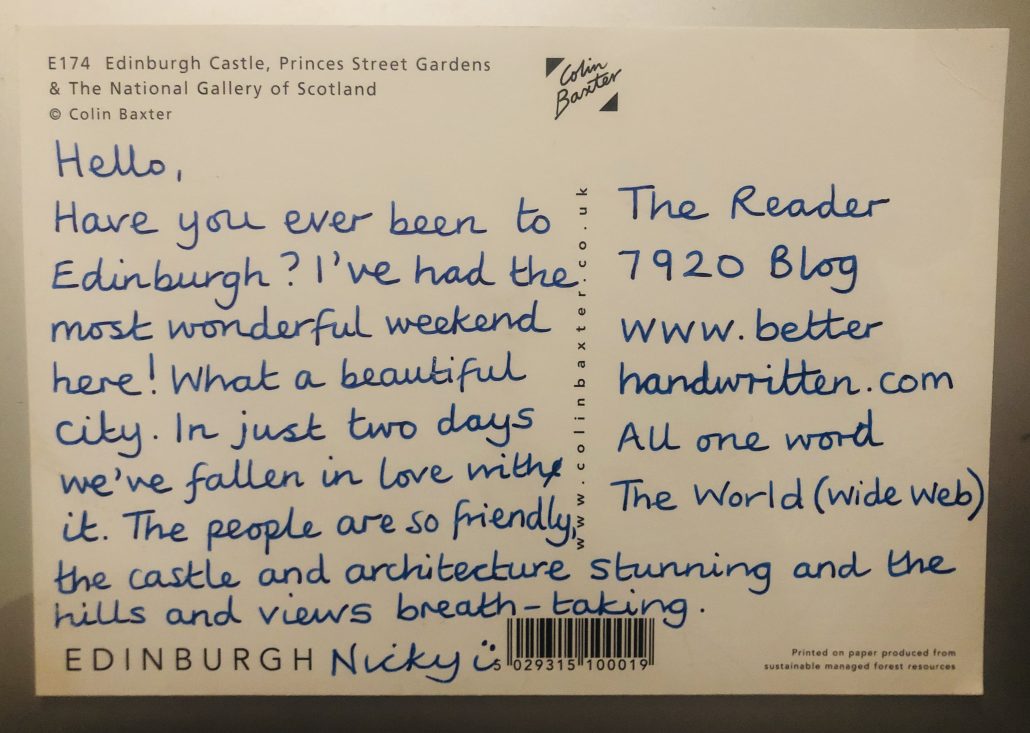 E174 Edinburgh Castle, Princes Street Gardens
& The National Gallery of Scotland
© Colin Baxter
Colin
Baxter
Hello,
Have you ever been to
Edinburgh? I've had the
most wonderful weekend
here! What a beautiful
city. In just two days
we've fallen in love with
it. The people are so friendly,
the castle and architecture stunning and the
hills and views breath-taking.
Nicky
www.colinbaxter.co.uk
The Reader
7920 Blog
www.better
handwritten.com
All one word
The World (wide web)
EDINBURGH
5 029315 100019
Printed on paper produced from
sustainable managed forest resources